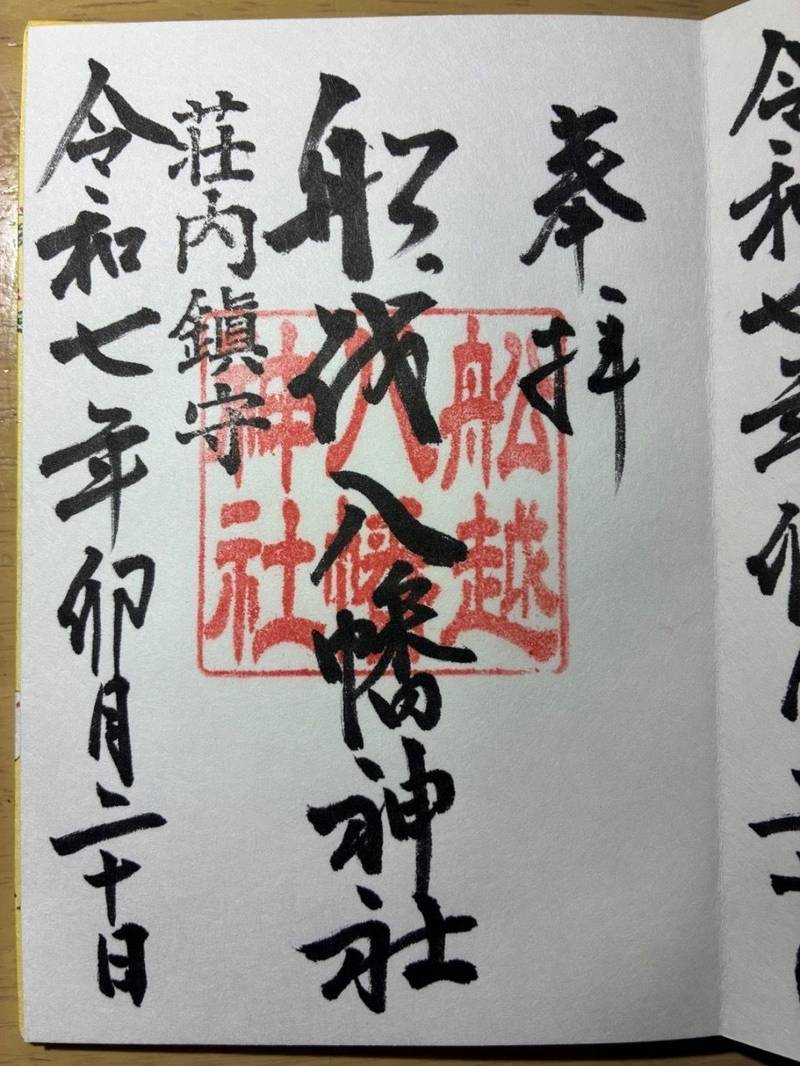 令和七年卯月二十日
奉拝
舩越八幡神社
荘内鎮守
令和七年卯月二十日
舩越
八幡
神社